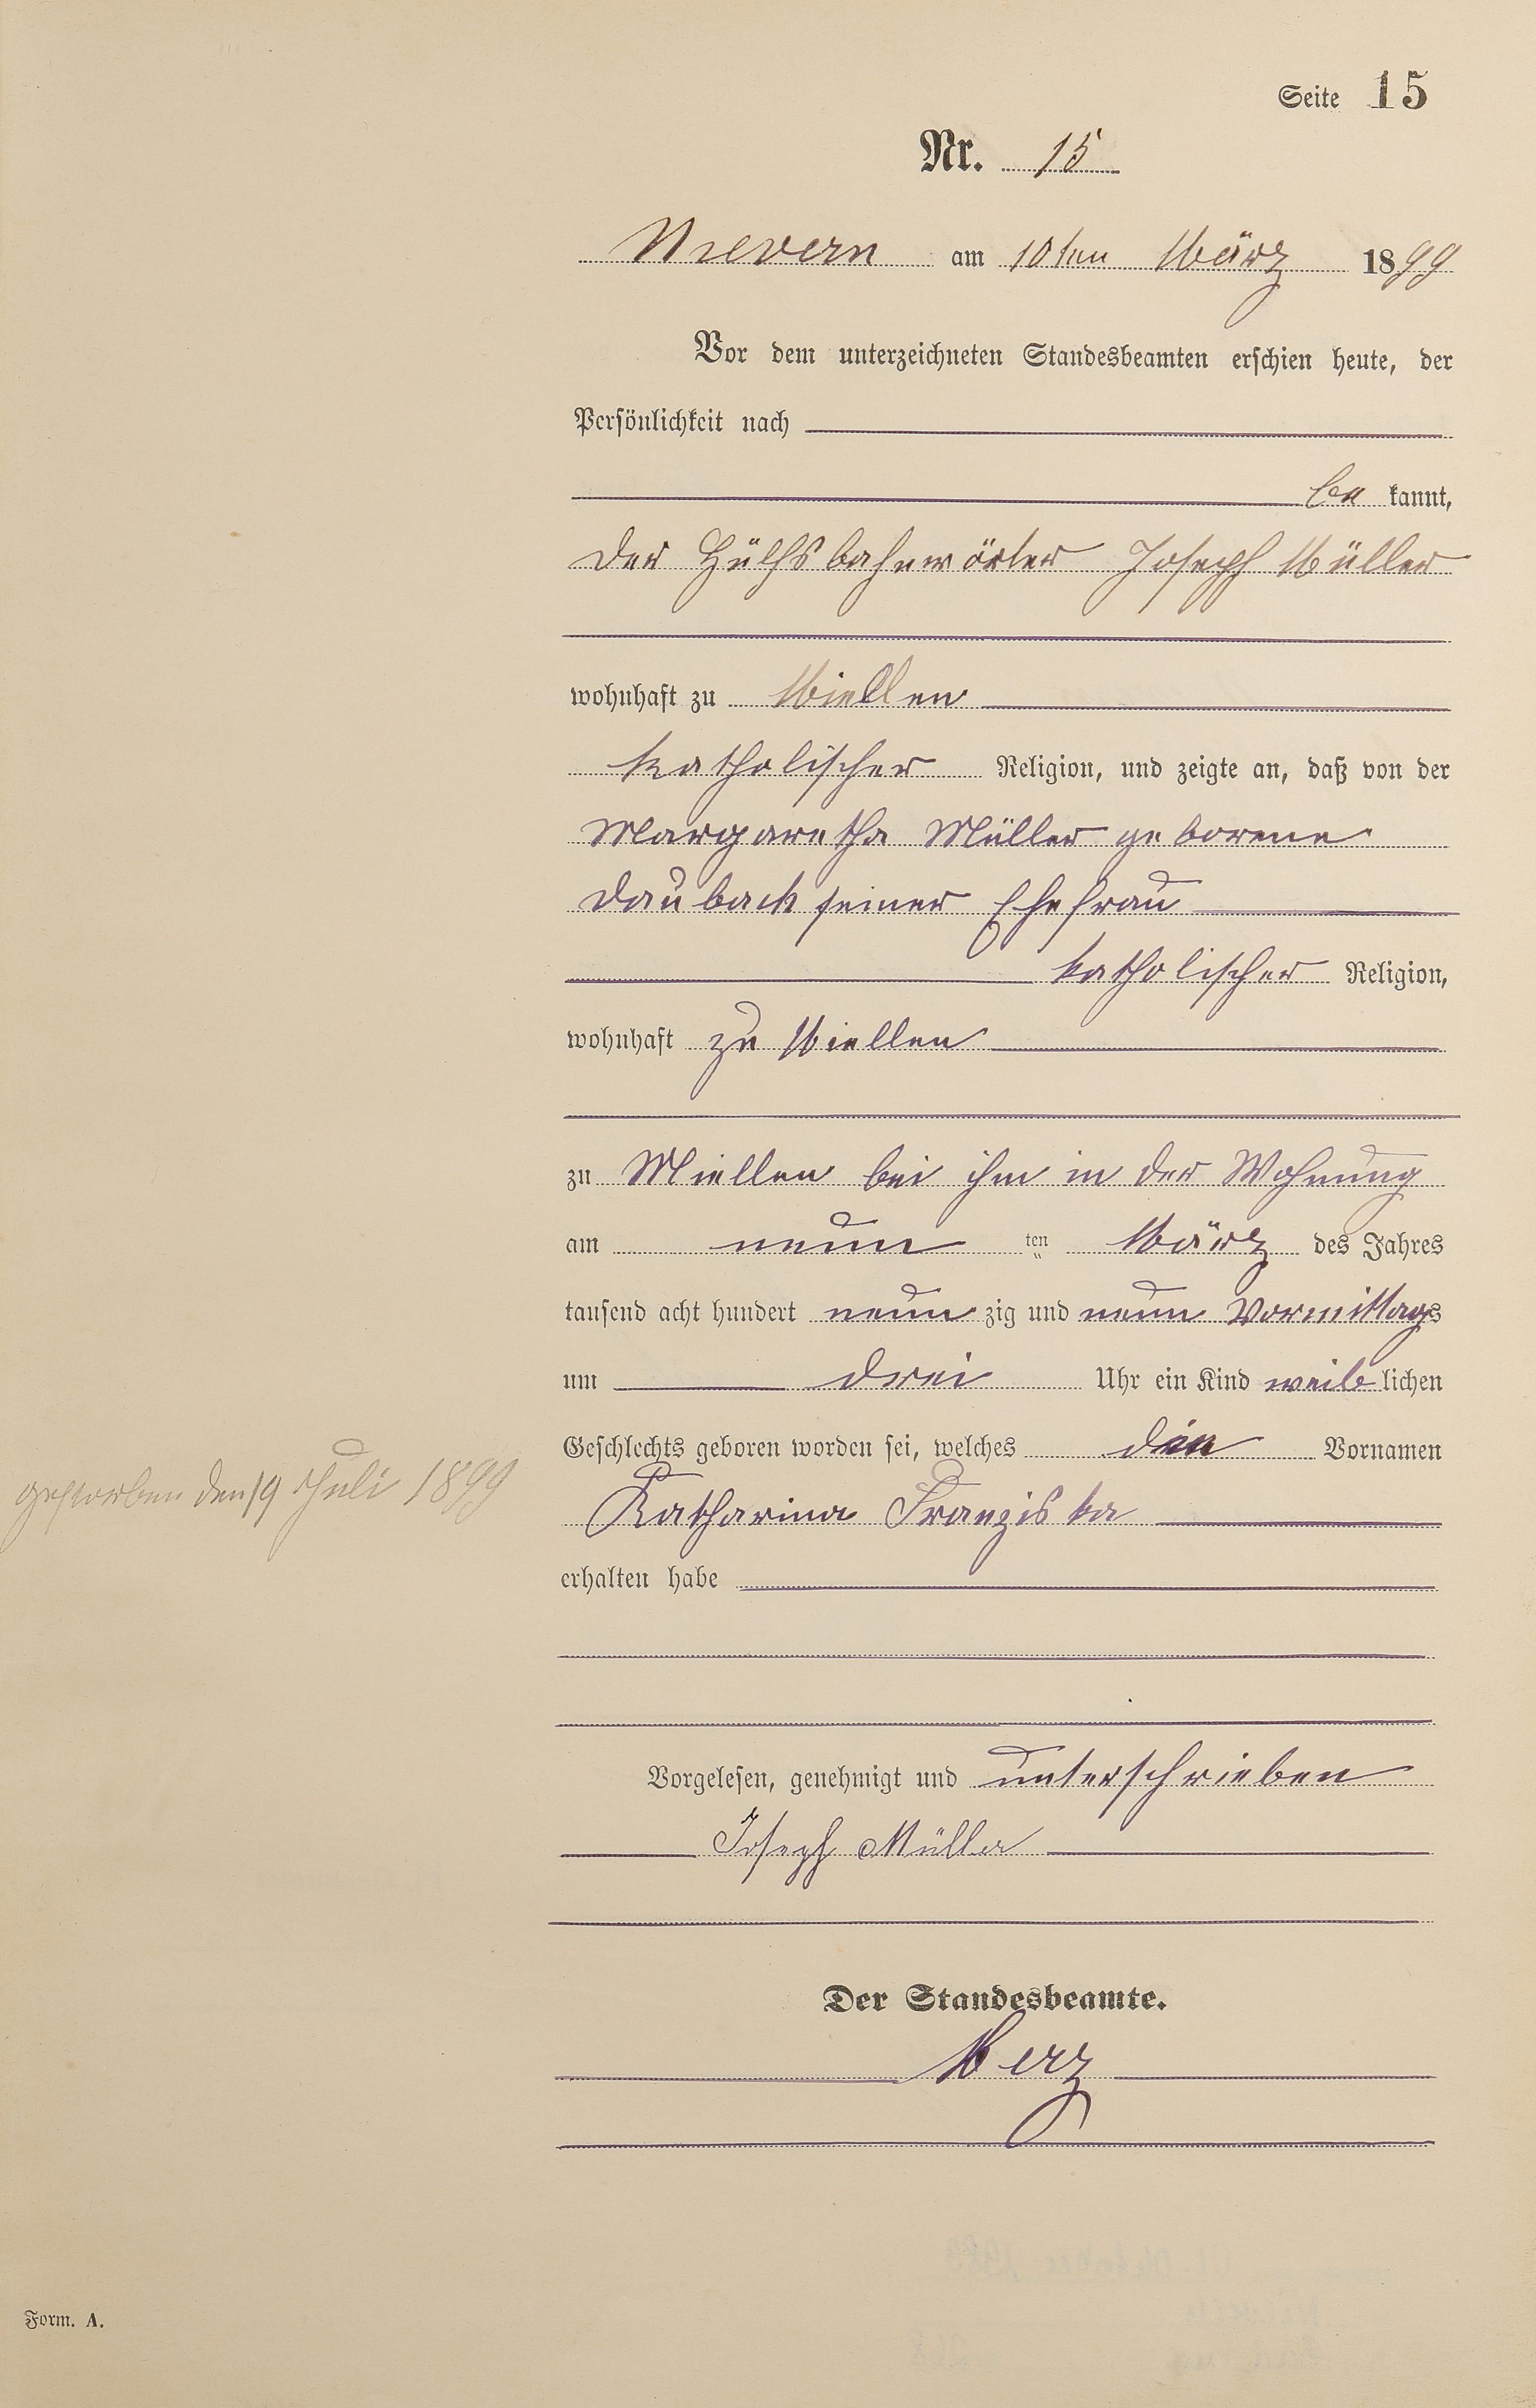 Seite 15
Nr. 15
Nievern am 10ten März 1899
Vor dem unterzeichneten Standesbeamten erschien heute, der
Persönlichkeit nach
be kannt,
der Hülfsbahnwärter Joseph Müller
wohnhaft zu Miellen
katholischer Religion, und zeigte an, daß von der
Margaretha Müller geborene
Daubach seiner Ehefrau
katholischer Religion,
wohnhaft zu Miellen
zu Miellen bei ihm in der Wohnung
am neun ten März des Jahres
tausend acht hundert neun zig und neun Vormittags
um drei Uhr ein Kind weib lichen
Geschlechts geboren worden sei, welches die Vornamen
gestorben den 19 Juli 1899
Katharina Franziska
erhalten habe
Vorgelesen, genehmigt und unterschrieben
Joseph Müller
Der Standesbeamte.
Merz
Form. A.